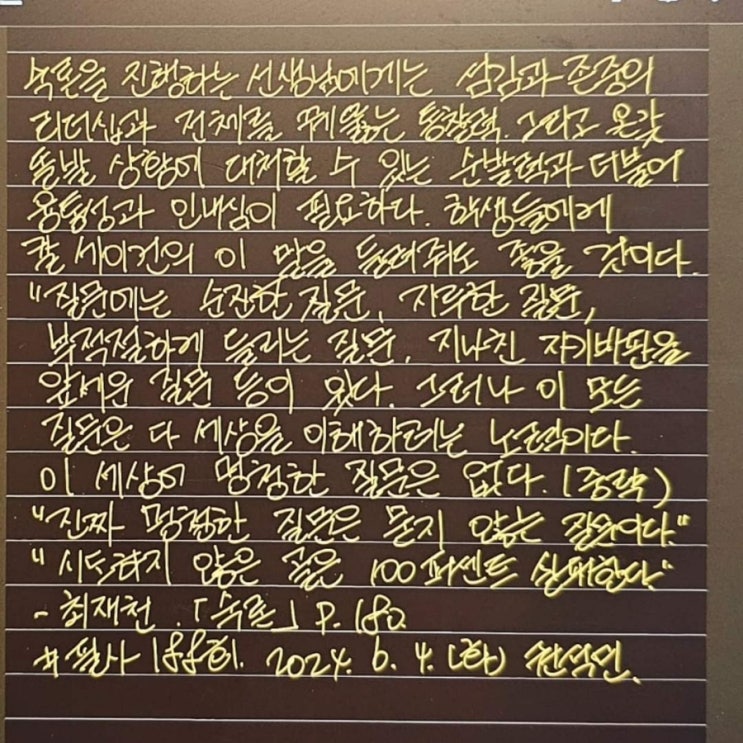 숙론을 진행하는 선생님에게는 섬김과 존중의
리더십과 전체를 꿰뚫는 통찰력. 그리고 온갖
돌발 상황에 대처할 수 있는 순발력과 더불어
융통성과 인내심이 필요하다. 학생들에게
칼 세이건의 이 말을 들려줘도 좋을 것이다.
"질문에는 순진한 질문, 지루한 질문,
부적절하게 들리는 질문, 지나친 자기비판을
앞세운 질문 등이 있다. 그러나 이 모든
질문은 다 세상을 이해하려는 노력이다.
이 세상에 멍청한 질문은 없다. (중략)
"진짜 멍청한 질문은 묻지 않는 질문이다."
"시도하지 않은 골은 100퍼센트 실패한다."
- 최재천.「숙론」P. 180.
#필사 188회. 2024. 6. 4. (화)